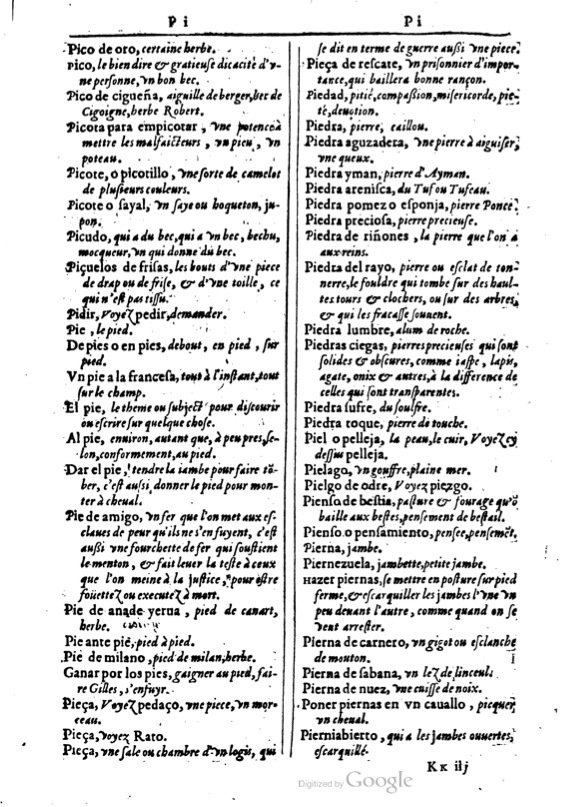 P i
Pico de oro, certaine herbe.
Pico, le bien dire & gratieuse dicacité d'v-
ne personne, vn bon bec.
Pico de cigueña, aiguille de berger, bec de
Cigoigne, herbe Robert.
Picota para empicotar, vne potence à
mettre les malfaicteurs, vn pieu, vn
poteau.
Picote, o picotillo, vne sorte de camelot
de plusieurs couleurs.
Picote o sayal, vn saye ou hoqueton, ju-
pon.
Picudo, qui a du bec, qui a vn bec, bechu,
mocqueur, vn qui donne du bec.
Piçuelos de frisas, les bouts d'vne piece
de drap ou de frise, & d'vne toille, ce
qui n'est pas tissu.
Pidir, Voyez pedir, demander.
Pie, le pied.
De pies o en pies, debout, en pied, sur
pied.
Vn pie a la francesa, tout à l'instant, tout
sur le champ.
El pie, le theme ou subject pour discourir
ou escrire sur quelque chose.
Al pie, environ, autant que, à peu pres, se-
lon, conformement, au pied.
Dar el pie, tendre la iambe pour faire tõ-
ber, c'est aussi, donner le pied pour mon-
ter à cheual.
Pie de amigo, vn fer que l'on met aux es-
claues de peur qu'ils ne s'enfuyent, c'est
aussi vne fourchette de fer qui soustient
le menton, & fait leuer la teste à ceux
que l'on meine à la justice, pour estre
foüettez ou executez à mort.
Pie de anade yerua, pied de canart,
herbe.
Pie ante pié, pied à pied.
Pie de milano, pied de milan, herbe.
Ganar por los pies, gaigner au pied, fai-
re Gilles, s'enfuyr.
Pieça, Voyez pedaço, vne piece, vn mor-
ceau.
Pieça, voyez Rato.
Pieça, vne sale ou chambre d'vn logis, qui
P i
se dit en terme de guerre aussi vne piece.
Pieça de rescate, vn prisonnier d'impor-
tance, qui baillera bonne rançon.
Piedad, pitié, compassion, misericorde, pie-
té, deuotion.
Piedra, pierre, caillou.
Piedra aguzadera, vne pierre à aiguiser,
vne queux.
Piedra yman, pierre d'Ayman.
Piedra arenisca, du Tuf ou Tufeau.
Piedra pomez o esponja, pierre Ponce.
Piedra preciosa, pierre precieuse.
Piedra de riñones, la pierre que l'on à
aux reins.
Piedra del rayo, pierre ou esclat de ton-
nerre, le fouldre qui tombe sur des haul-
tes tours & clochers, ou sur des arbres,
& qui les fracasse souuent.
Piedra lumbre, alum de roche.
Piedras ciegas, pierres precieuses qui sont
solides & obscures, comme iaspe, lapis,
agate, onix & autres, à la difference de
celles qui sont transparentes.
Piedra sufre, du soulfre.
Piedra toque, pierre de touche.
Piel o pelleja, la peau, le cuir, Voyez cy
dessus pelleja.
Pielago, vn gouffre, plaine mer.
Pielgo de odre, Voyez piezgo.
Pienso de bestia, pasture & fourage qu'õ
baille aux bestes, pensement de bestail.
Pienso o pensamiento, pensee, pensemẽt.
Pierna, jambe.
Piernezuela, jambette, petite jambe.
Hazer piernas, se mettre en posture sur pied
ferme, & escarquiller les jambes l'vne vn
peu deuant l'autre, comme quand on se
veut arrester.
Pierna de carnero, vn gigot ou esclanche
de mouton.
Pierna de sabana, vn lez de linceul.
Pierna de nuez, vne cuisse de noix.
Poner piernas en vn cauallo, picquer
vn cheual.
Pierniabierto, qui a les jambes ouuertes,
escarquillé.
Kk iij
Digitized by Google